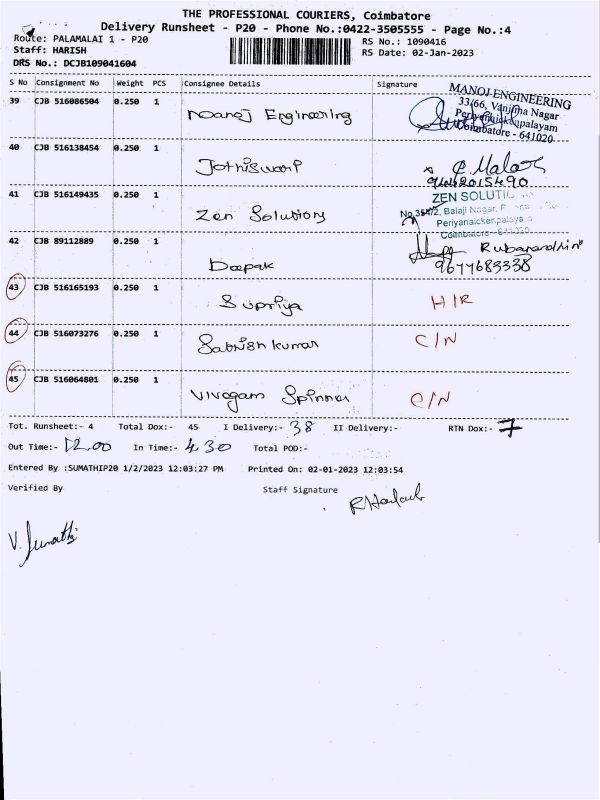 THE PROFESSIONAL COURIERS, Coimbatore
Delivery Runsheet - P20 - Phone No.:0422-3505555 - Page No.:4
Route: PALAMALAI 1 - P20
RS No.: 1090416
Staff: HARISH
RS Date: 02-Jan-2023
DRS No.: DCJB109041604
S No Consignment No Weight PCS Consignee Details Signature
39 CJB 516086504 0.250 1 Manoj Engineering
MANOJ ENGINEERING
33/66, Vanjima Nagar
Periyanaickenpalayam
Coimbatore - 641020
40 CJB 516138454 0.250 1 Jothiswari
9442015490
41 CJB 516149435 0.250 1 Zen Solutions
ZEN SOLUTI
Balaji Nagar,
Periyanaickenpalaya
Coimbatore - 641020
42 CJB 89112889 0.250 1 Deepak
9677683338
43 CJB 516165193 0.250 1 Supriya H/R
44 CJB 516073276 0.250 1 Sabrish kumar C/N
45 CJB 516064801 0.250 1 Vivogam Spinner C/N
Tot. Runsheet:- 4 Total Dox:- 45 I Delivery:- 38 II Delivery:- RTN Dox:- 7
Out Time:- 12.00 In Time:- 4.30 Total POD:-
Entered By :SUMATHIP20 1/2/2023 12:03:27 PM Printed On: 02-01-2023 12:03:54
Verified By Staff Signature
V. Sumathi